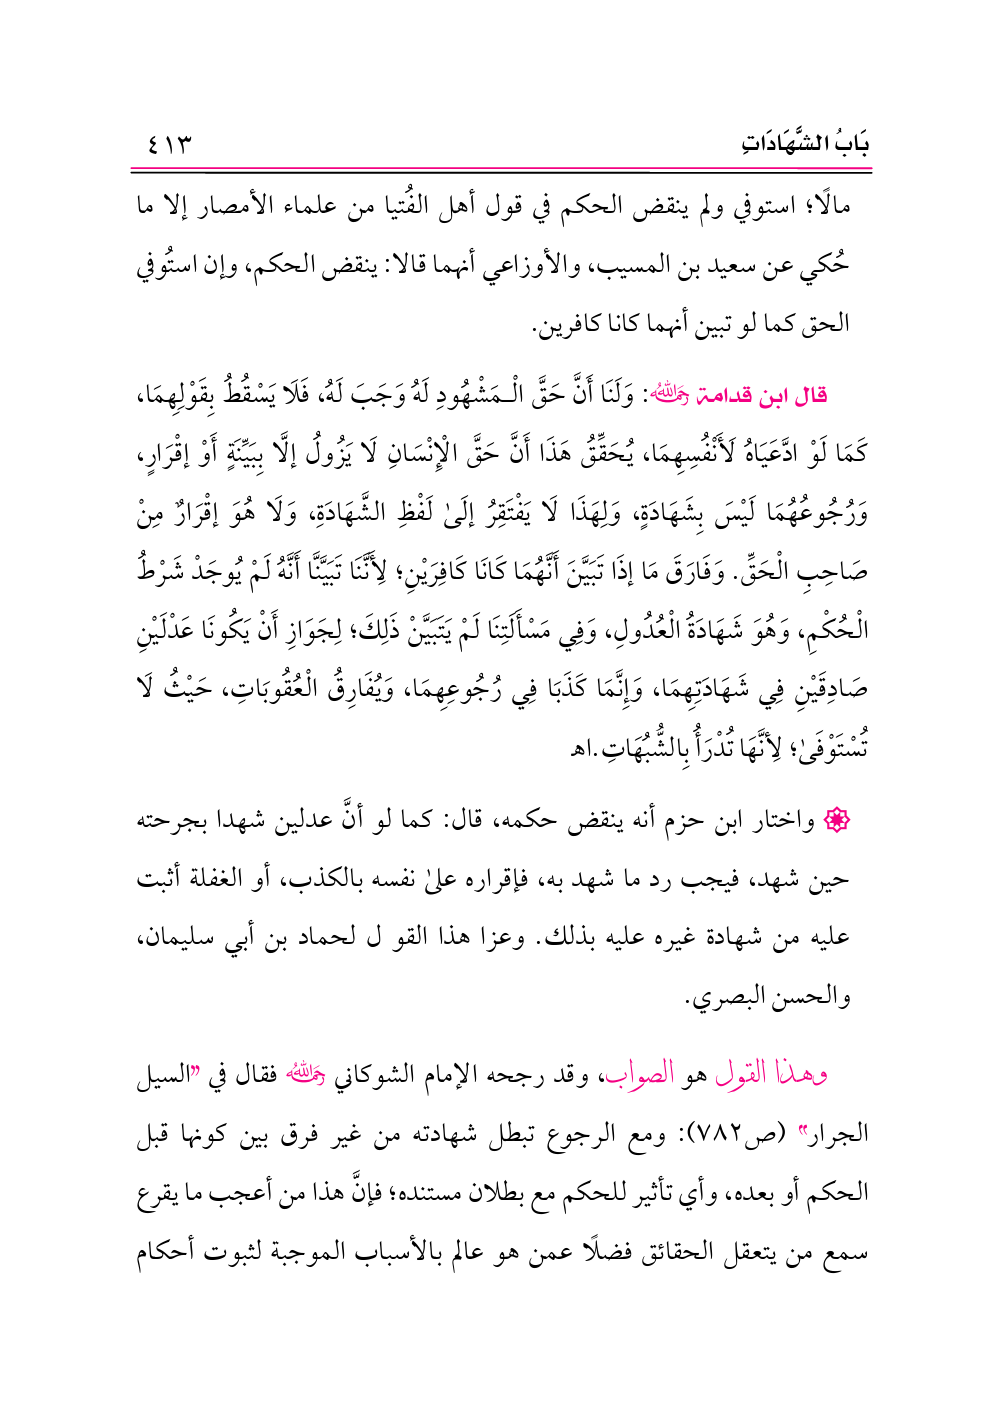 بَابُ الشَّهَادَاتِ ٤١٣
مالًا؛ استوفي ولم ينقض الحكم في قول أهل الفُتيا من علماء الأمصار إلا ما
حُكي عن سعيد بن المسيب، والأوزاعي أنهما قالا: ينقض الحكم، وإن استُوفي
الحق كما لو تبين أنهما كانا كافرين.
قال ابن قدامة رحمه الله: وَلَنَا أَنَّ حَقَّ الْـمَشْهُودِ لَهُ وَجَبَ لَهُ، فَلَا يَسْقُطُ بِقَوْلِهِمَا،
كَمَا لَوْ ادَّعَيَاهُ لَأَنْفُسِهِمَا، يُحَقِّقُ هَذَا أَنَّ حَقَّ الْإِنْسَانِ لَا يَزُولُ إلَّا بِبَيِّنَةٍ أَوْ إقْرَارٍ،
وَرُجُوعُهُمَا لَيْسَ بِشَهَادَةٍ، وَلِهَذَا لَا يَفْتَقِرُ إلَىٰ لَفْظِ الشَّهَادَةِ، وَلَا هُوَ إقْرَارٌ مِنْ
صَاحِبِ الْحَقِّ. وَفَارَقَ مَا إذَا تَبَيَّنَ أَنَّهُمَا كَانَا كَافِرَيْنِ؛ لِأَنَّنَا تَبَيَّنَّا أَنَّهُ لَمْ يُوجَدْ شَرْطُ
الْحُكْمِ، وَهُوَ شَهَادَةُ الْعُدُولِ، وَفِي مَسْأَلَتِنَا لَمْ يَتَبَيَّنْ ذَلِكَ؛ لِجَوَازِ أَنْ يَكُونَا عَدْلَيْنِ
صَادِقَيْنِ فِي شَهَادَتِهِمَا، وَإِنَّمَا كَذَبَا فِي رُجُوعِهِمَا، وَيُفَارِقُ الْعُقُوبَاتِ، حَيْثُ لَا
تُسْتَوْفَىٰ؛ لِأَنَّهَا تُدْرَأُ بِالشُّبُهَاتِ.اهـ
واختار ابن حزم أنه ينقض حكمه، قال: كما لو أنَّ عدلين شهدا بجرحته
حين شهد، فيجب رد ما شهد به، فإقراره علىٰ نفسه بالكذب، أو الغفلة أثبت
عليه من شهادة غيره عليه بذلك. وعزا هذا القو ل لحماد بن أبي سليمان،
والحسن البصري.
وهذا القول هو الصواب، وقد رجحه الإمام الشوكاني رحمه الله فقال في "السيل
الجرار" (ص٧٨٢): ومع الرجوع تبطل شهادته من غير فرق بين كونها قبل
الحكم أو بعده، وأي تأثير للحكم مع بطلان مستنده؛ فإنَّ هذا من أعجب ما يقرع
سمع من يتعقل الحقائق فضلًا عمن هو عالم بالأسباب الموجبة لثبوت أحكام